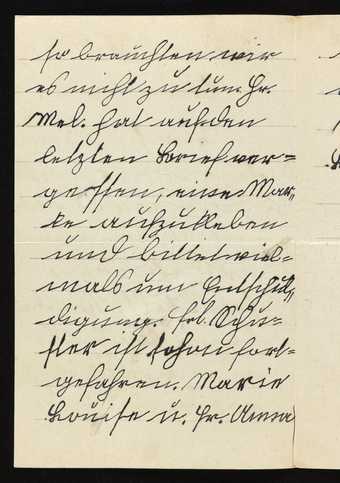 so brauchten wir
es nicht zu tun. Fr.
Mel. hat auf den
letzten Brief ver=
gessen, eine Mar=
ke aufzukleben
und bittet viel=
mals um Entschul=
digung. Frl. Schu=
ster ist schon fort=
gefahren. Marie
Louise u. Fr. Anna